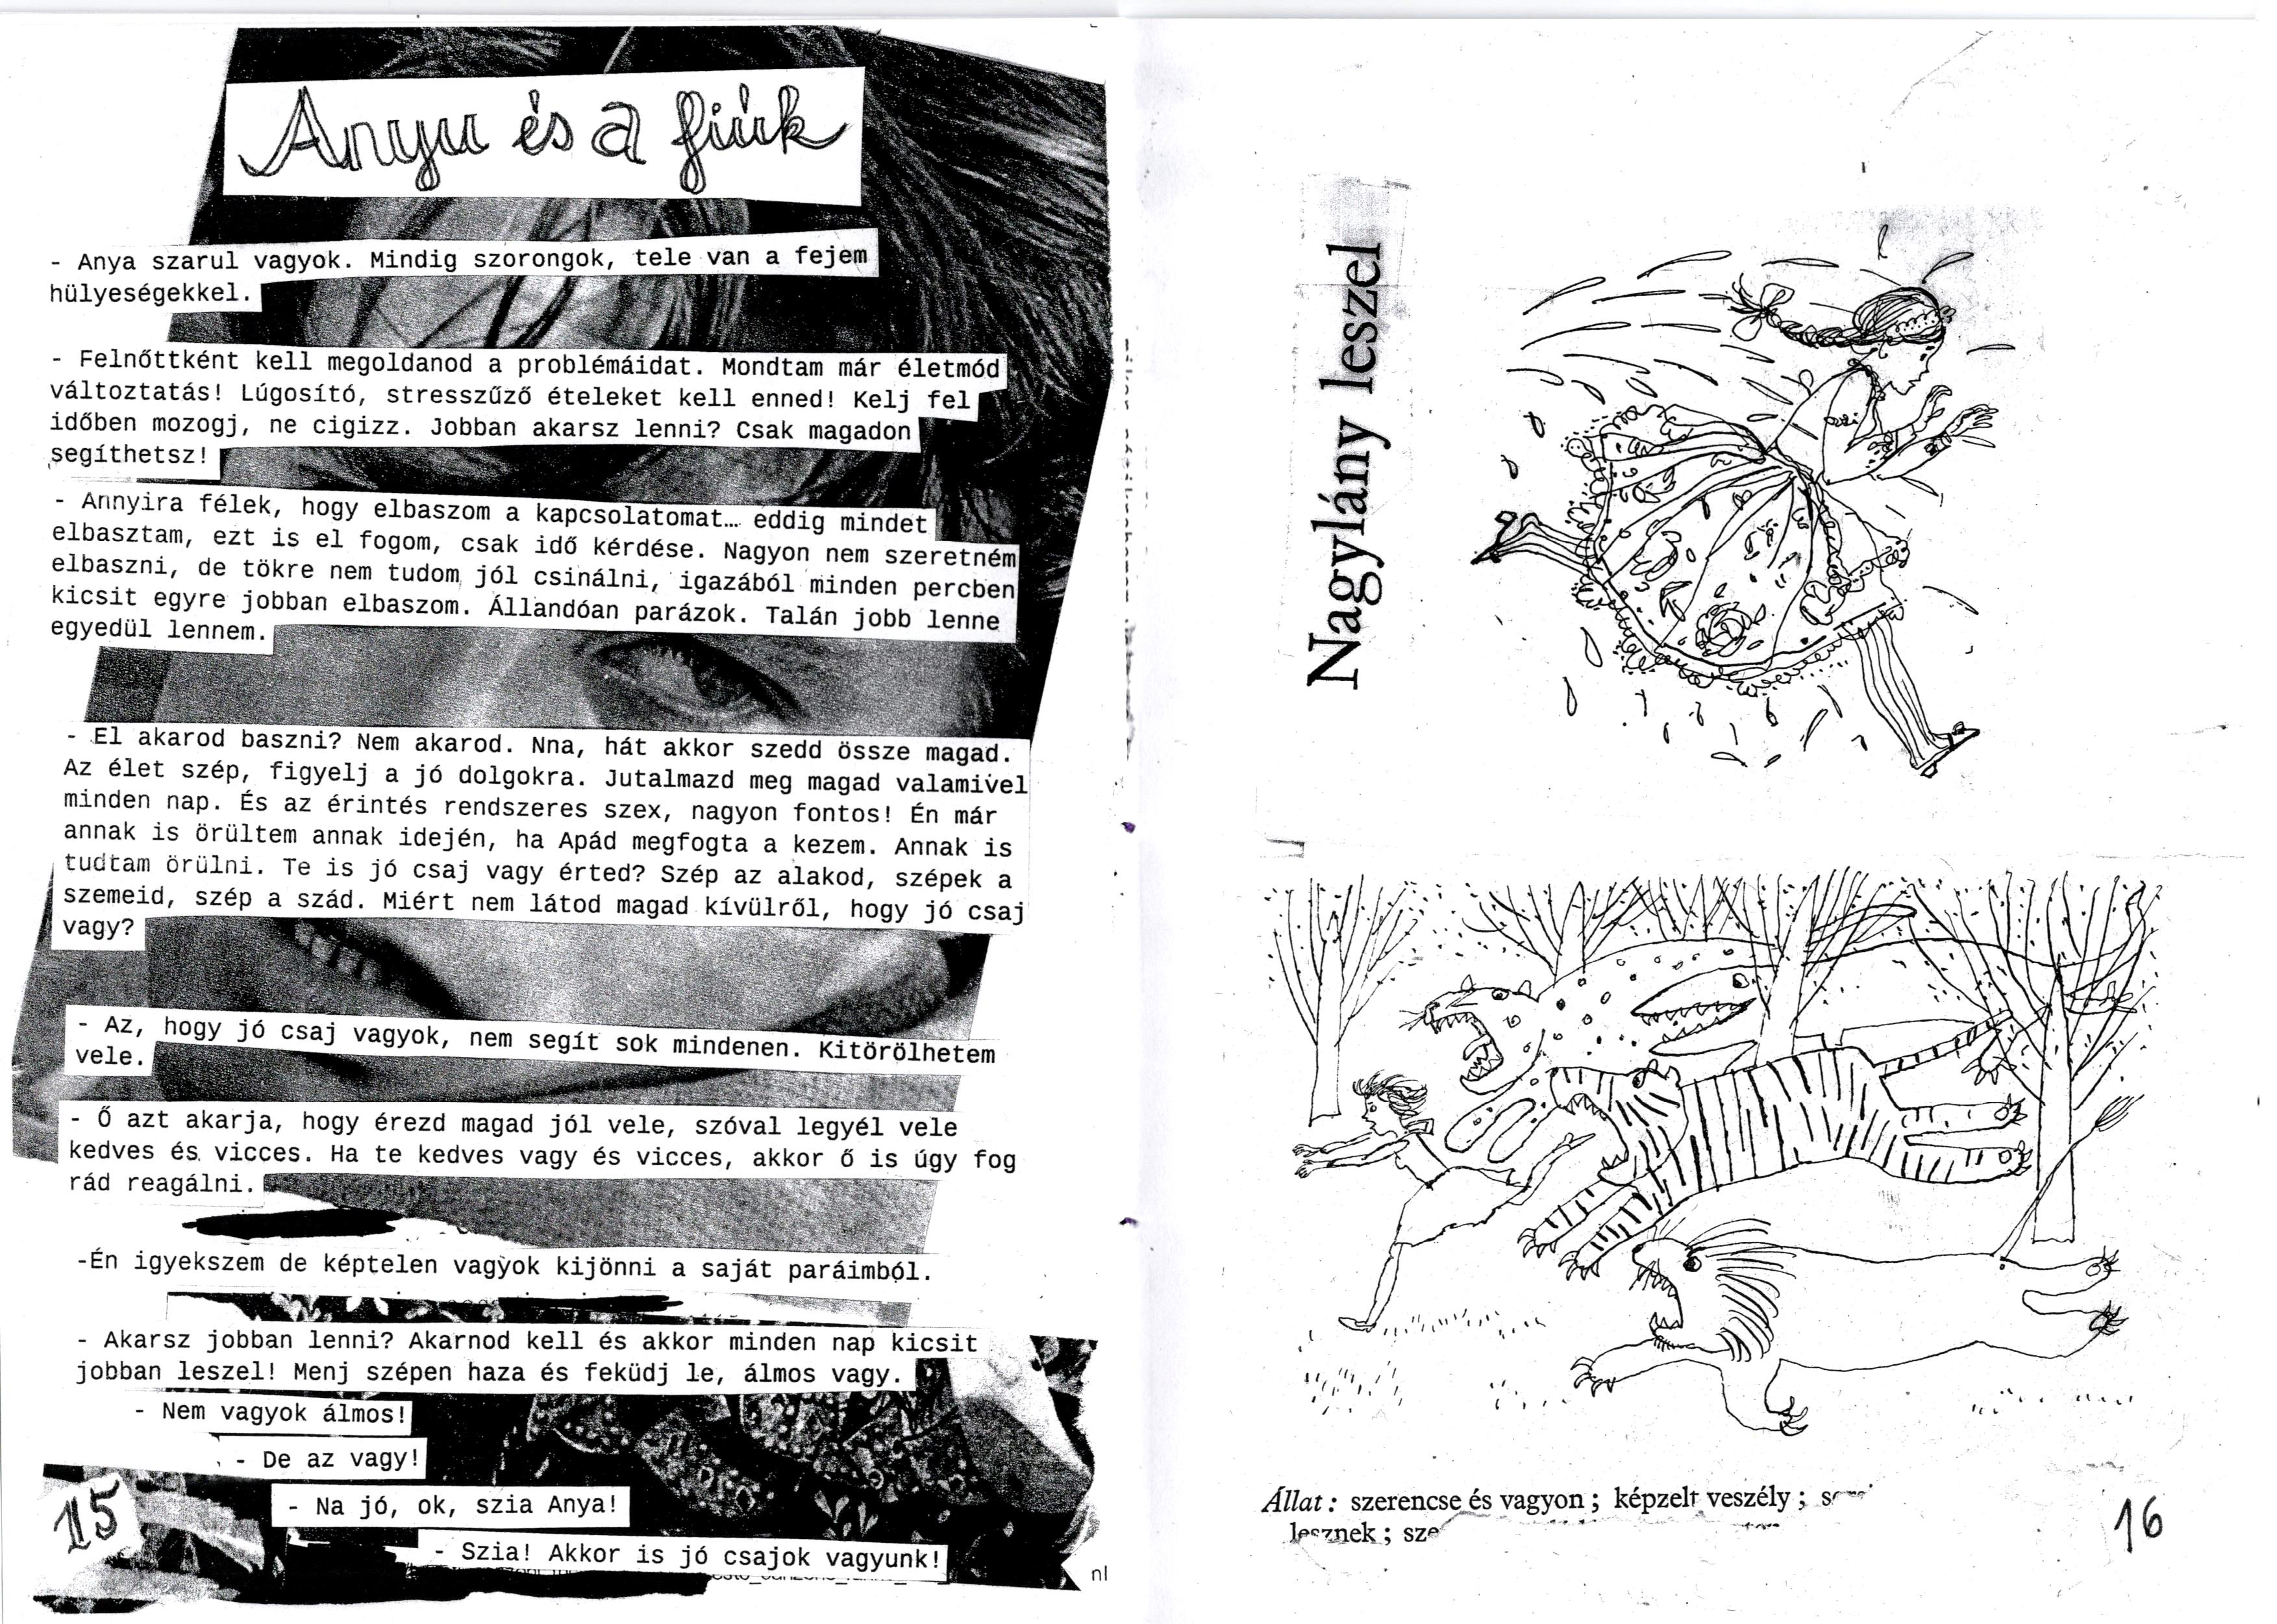 Anyu és a fiúk
- Anya szarul vagyok. Mindig szorongok, tele van a fejem
hülyeségekkel.
- Felnőttként kell megoldanod a problémáidat. Mondtam már életmód
változtatás! Lúgosító, stresszűző ételeket kell enned! Kelj fel
időben mozogj, ne cigizz. Jobban akarsz lenni? Csak magadon
segíthetsz!
- Annyira félek, hogy elbaszom a kapcsolatomat… eddig mindet
elbasztam, ezt is el fogom, csak idő kérdése. Nagyon nem szeretném
elbaszni, de tökre nem tudom jól csinálni, igazából minden percben
kicsit egyre jobban elbaszom. Állandóan parázok. Talán jobb lenne
egyedül lennem.
- El akarod baszni? Nem akarod. Nna, hát akkor szedd össze magad.
Az élet szép, figyelj a jó dolgokra. Jutalmazd meg magad valamivel
minden nap. És az érintés rendszeres szex, nagyon fontos! Én már
annak is örültem annak idején, ha Apád megfogta a kezem. Annak is
tudtam örülni. Te is jó csaj vagy érted? Szép az alakod, szépek a
szemeid, szép a szád. Miért nem látod magad kívülről, hogy jó csaj
vagy?
- Az, hogy jó csaj vagyok, nem segít sok mindenen. Kitörölhetem
vele.
- Ő azt akarja, hogy érezd magad jól vele, szóval legyél vele
kedves és vicces. Ha te kedves vagy és vicces, akkor ő is úgy fog
rád reagálni.
-Én igyekszem de képtelen vagyok kijönni a saját paráimból.
- Akarsz jobban lenni? Akarnod kell és akkor minden nap kicsit
jobban leszel! Menj szépen haza és feküdj le, álmos vagy.
- Nem vagyok álmos!
- De az vagy!
- Na jó, ok, szia Anya!
- Szia! Akkor is jó csajok vagyunk!
nl
15
Nagylány leszel
Állat: szerencse és vagyon; képzelt veszély;
lesznek;
16